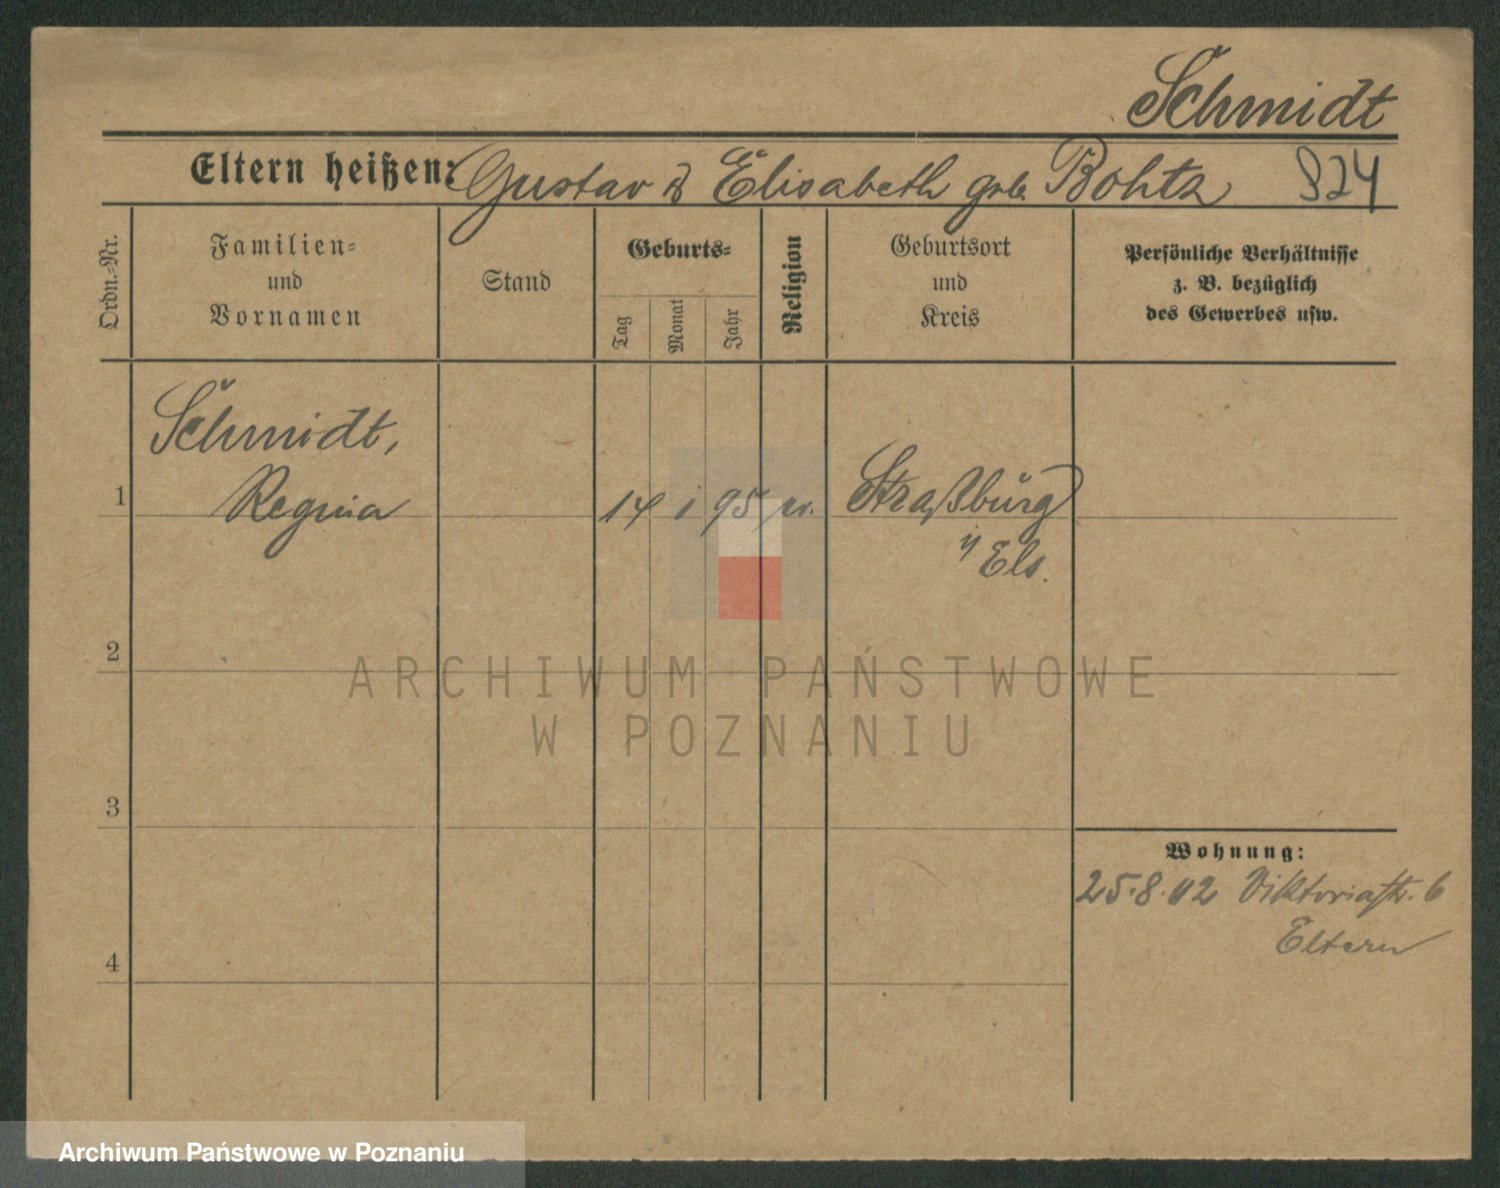 Schmidt
Eltern heißen: Gustav & Elisabeth geb. Bohtz 824
Ordn.-Nr.
Familien-
und
Vornamen
Stand
Geburts-
Tag
Monat
Jahr
Religion
Geburtsort
und
Kreis
Persönliche Verhältnisse
z. B. bezüglich
des Gewerbes usw.
Schmidt,
1 Regina 14 1 95 ev. Straßburg
i/ Els.
2
ARCHIWUM PAŃSTWOWE
W POZNANIU
3
Wohnung:
25.8.02 Viktoriastr. 6
Eltern
4
Archiwum Państwowe w Poznaniu